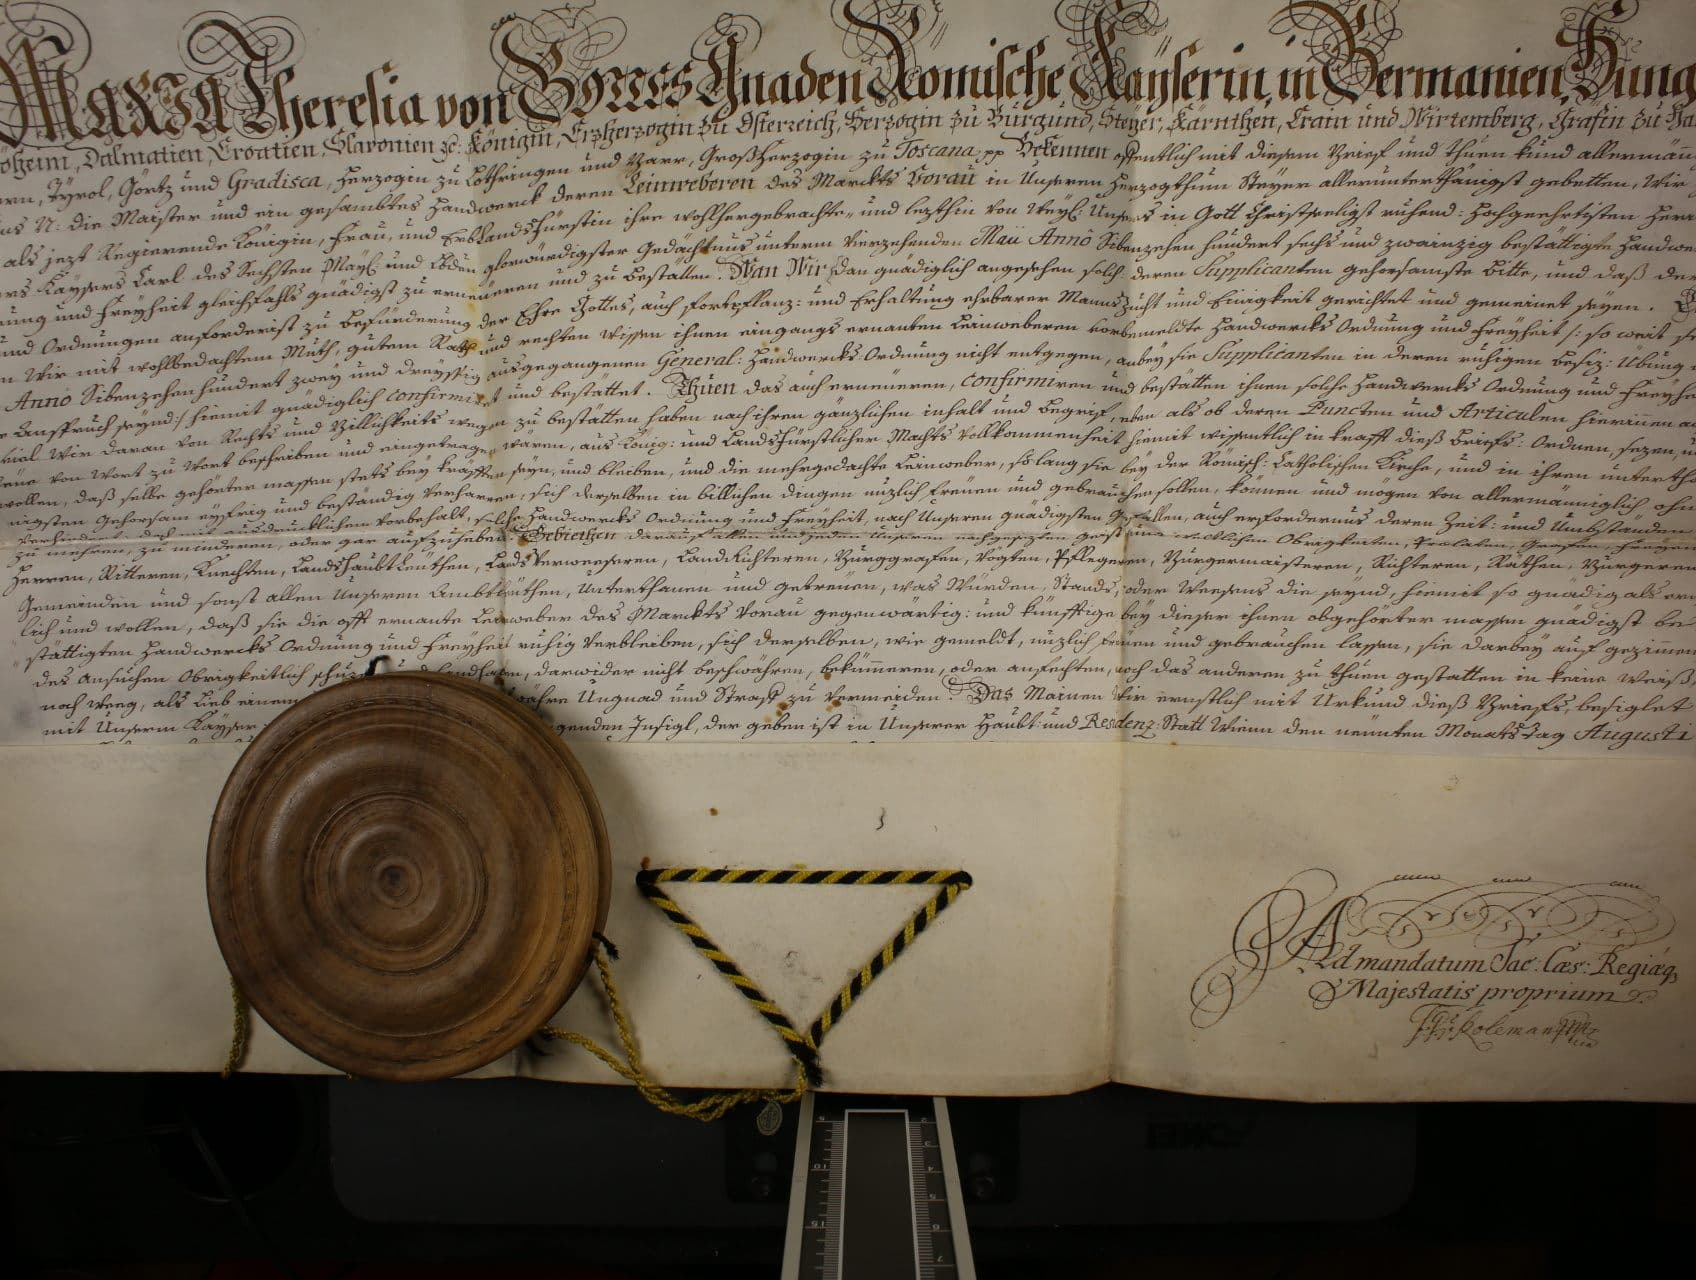 MARIA Theresia von GOTTES Gnaden Römische Kayserin, in Germanien, Hung
öheim, Dalmatien, Croatien, Slavonien ꝛc: Königin, Erzherzogin zu Österreich, Herzogin zu Burgund, Steyer, Kärnthen, Crain und Wirtemberg, Gräfin zu Ha
Tyrol, Görtz und Gradisca, Herzogin zu Lothringen und Barr, Großherzogin zu Toscana pp Bekennen offentlich mit diesem Brief und thuen kund allermän
N: die Maister und ein gesambtes Handwerck deren Leinweberen des Marckts Vorau in Unseren Herzogthum Steyer allerunterthänigst gebetten, Wir
als jezt Regierende Königin, Frau, und Erblandsfürstin ihre wohlhergebrachte und lezthin von Weyl: Unsers in Gott Christseeligst ruhend: Hochgeehrtisten Herrn
Kaysers Carl des Sechsten May: und Lbden glorwürdigster Gedächtnus unterm Vierzehenden Maii Anno Sibenzehen hundert sechs und zwainzig bestättigte Handwe
nung und Freyheit gleichfahls gnädigst zu erneueren und zu bestätten. Wan Wir dan gnädiglich angesehen solch deren Supplicanten gehorsamste Bitte, und daß der
und Ordnungen anforderist zu Befürderung der Ehre Gottes, auch Fortpflanz: und Erhaltung ehrbarer Manns Zucht und Einigkeit gerichtet und gemeinet seyen.
Wir mit wohlbedachtem Muth, gutem Rath und rechten Wissen ihnen eingangs ernanten Leinweberen vorbemeldte Handwercks Ordnung und Freyheit /: so weit se
Anno Sibenzehenhundert zwey und dreyssig ausgegangenen General: Handwercks Ordnung nicht entgegen, anbey sie Supplicanten in deren ruhigen Besiz: Übung
Anspruch seynd :/ hiemit gnädiglich confirmiret und bestättet. Thuen das auch erneueren, confirmiren und bestätten ihnen solche Handwercks Ordnung und Freyhe
vial Wir daran von Rechts und Billichkeits wegen zu bestätten haben nach ihren gänzlichen Inhalt und Begrif, eben als ob deren Puncten und Articulen hierinnen
von Wort zu Wort beschriben und eingetragen wären, aus König: und Landsfürstlicher Machts Vollkommenheit hiemit wissentlich in krafft dieß Briefs: Ordnen, sezen,
wollen, daß selbe gehörter massen stets bey kräfften seyn, und bleiben, und die mehrgedachte Leinweber, so lang sie bey der Römisch: Catholischen Kirche, und in ihren untertha
nigsten Gehorsam eyfrig und beständig verharren, sich derselben in billichen dingen nuzlich freuen und gebrauchen sollen, können und mögen von allermänniglich ohn
Verhindert: doch mit ausdrücklichem Vorbehalt, solche Handwercks Ordnung und Freyheit, nach Unseren gnädigsten Gefallen, auch erfordernus deren Zeit: und Umbständen
zu mehren, zu minderen, oder gar aufzuheben. Gebiethen darauf allen und jeden Unseren nachgesezten geist: und weltlichen Obrigkeiten, Prälaten, Grafen, Freyen
Herren, Ritteren, Knechten, LandsHaubtLeuthen, LandsVerweseren, LandRichteren, Burggrafen, Vögten, Pflegeren, Burgermaisteren, Richteren, Räthen, Burgeren
Gemeinden und sonst allen Unseren Ambtleuthen, Unterthanen und getreuen, was Würden, Stands, oder Weesens die seynd, hiemit so gnädig als ern
lich und wollen, daß sie die offt ernante Leinweber des Marckts Vorau gegenwärtig: und künfftige bey dieser ihnen obgehörter massen gnädigst be
stättigten Handwercks Ordnung und Freyheit ruhig verbleiben, sich derselben, wie gemeldt, nuzlich freuen und gebrauchen lassen, sie darbey auf gezimmen
des Ansuchen Obrigkeitlich schuzen und handhaben, darwider nicht beschwähren, bekümmeren, oder anfechten, noch das anderen zu thuen gestatten in keine Weiß,
noch Weeg, als Lieb einem schwähre Ungnad und Straff zu vermeiden. Das Mainen Wir ernstlich mit Urkund dieß Briefs, besiglet
mit Unserm Kayser genden Insigl, der geben ist in Unserer Haubt: und Residenz: Statt Wienn den neunten Monats Tag Augusti
Ad mandatum Sac: Cæs: Regiæq
Majestatis proprium